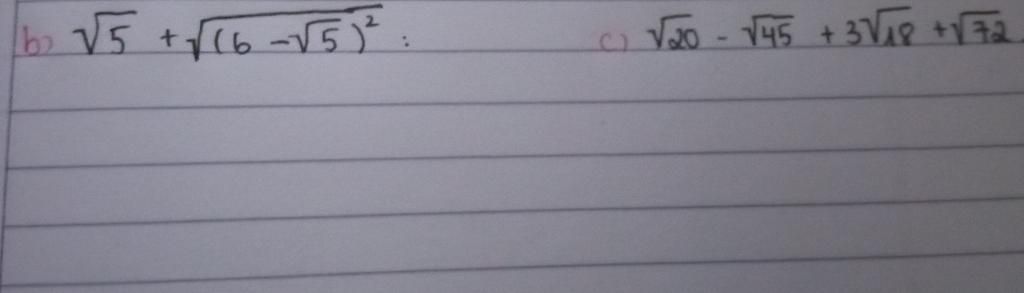 b) √5 + √(6 - √5)² : c) √20 - √45 + 3√18 + √72.